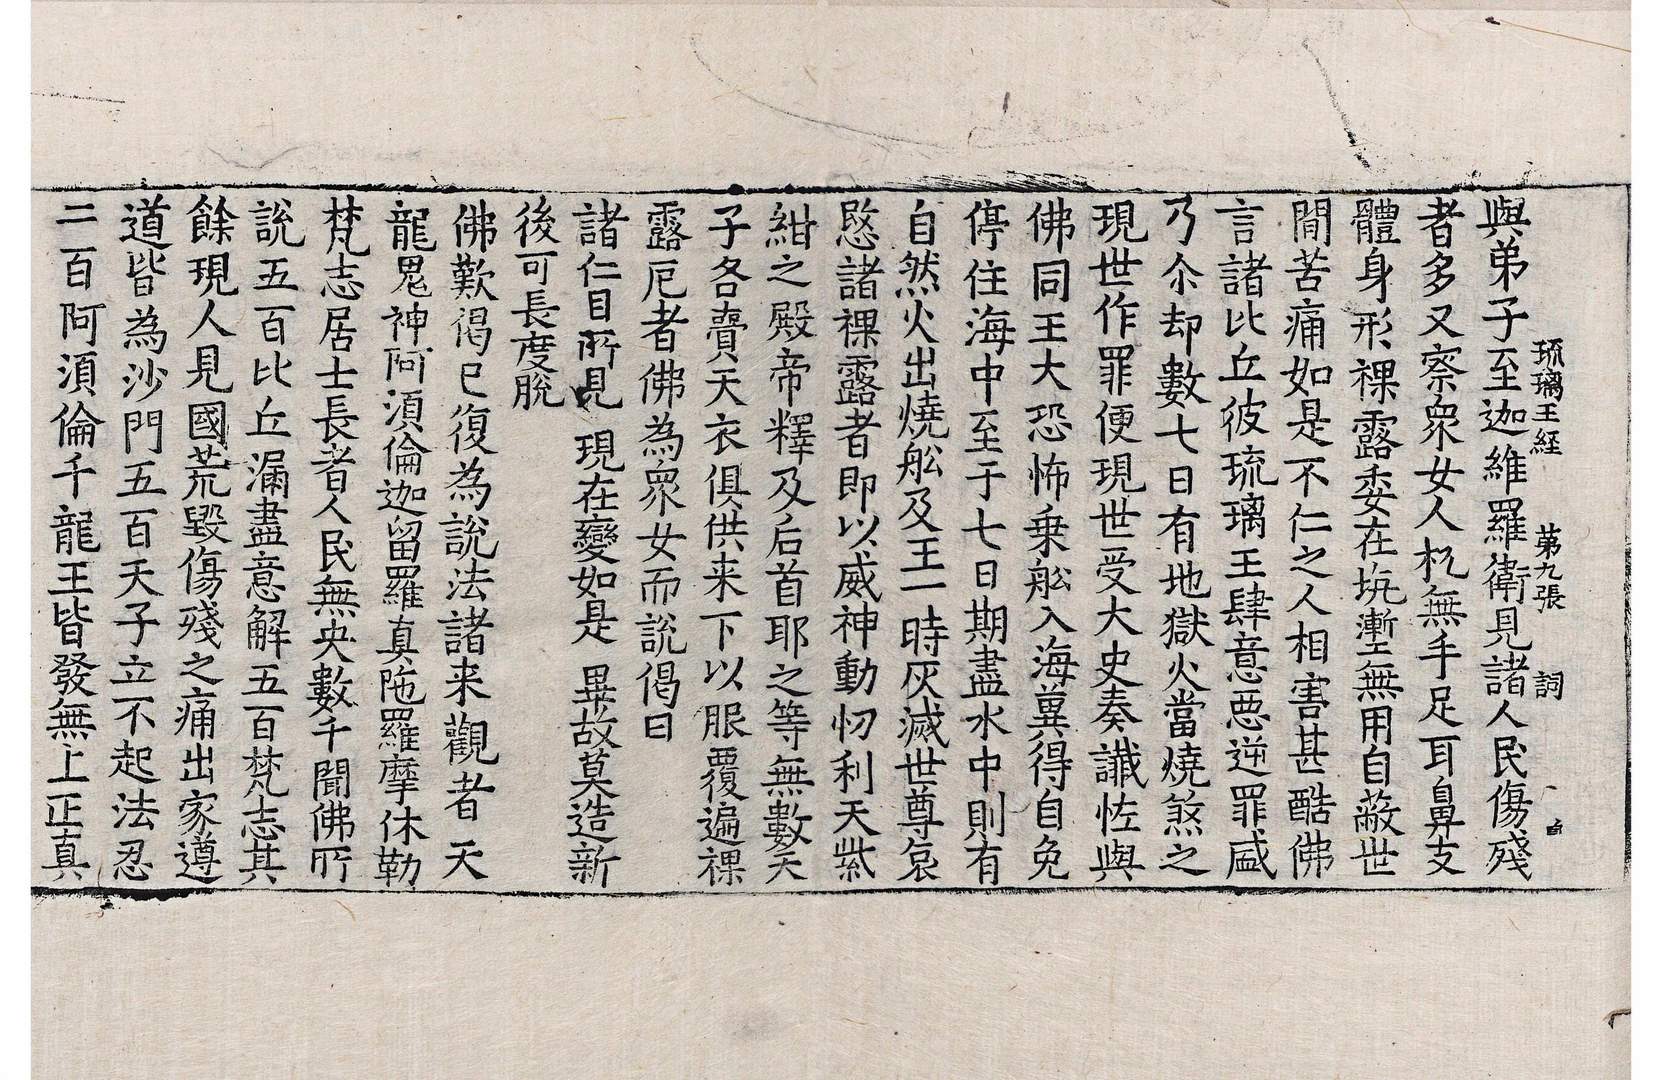 琉璃王経 第九張 詞
與弟子至迦維羅衛見諸人民傷殘
者多又察衆女人杌無手足耳鼻支
體身形裸露委在坑塹無用自蔽世
間苦痛如是不仁之人相害甚酷佛
言諸比丘彼琉璃王肆意惡逆罪盛
乃尒却數七日有地獄火當燒煞之
現世作罪便現世受大史奏讖恠與
佛同王大恐怖乗舩入海冀得自免
停住海中至于七日期盡水中則有
自然火出燒舩及王一時灰滅世尊哀
愍諸裸露者即以威神動忉利天紫
紺之殿帝釋及后首耶之等無數天
子各賷天衣俱供来下以服覆遍裸
露厄者佛為衆女而說偈曰
諸仁目所見 現在變如是 畢故莫造新
後可長度脫
佛歎偈已復為說法諸来觀者天
龍鬼神阿須倫迦留羅真陁羅摩休勒
梵志居士長者人民無央數千聞佛所
說五百比丘漏盡意解五百梵志其
餘現人見國荒毀傷殘之痛出家遵
道皆為沙門五百天子立不起法忍
二百阿須倫千龍王皆發無上正真